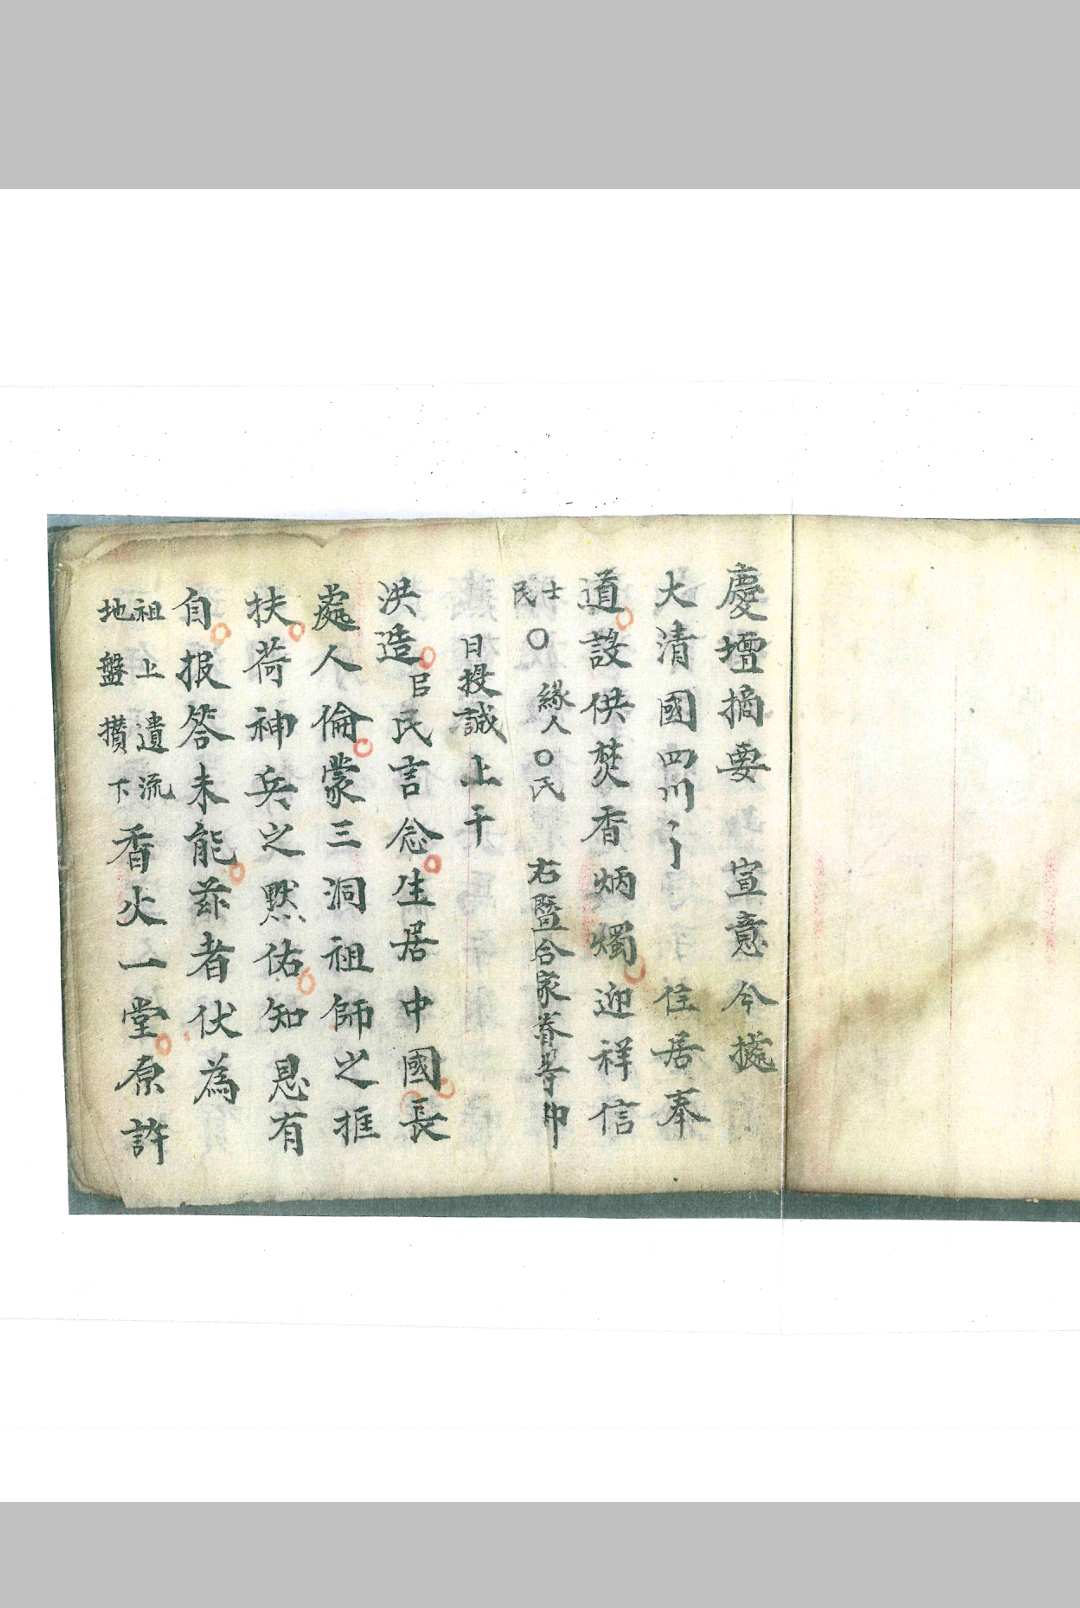 慶壇摘要 宣意今處
大清國四川省 住居奉
道設供焚香炳燭迎祥信
士民〇 緣人〇氏 右暨合家眷等即
日投誠上干
洪造官民言念生居中國長
處人倫蒙三洞祖師之推
扶荷神兵之默佑知恩有
自报答未能茲者伏為
祖上遺流地盤攢下香火一堂原許